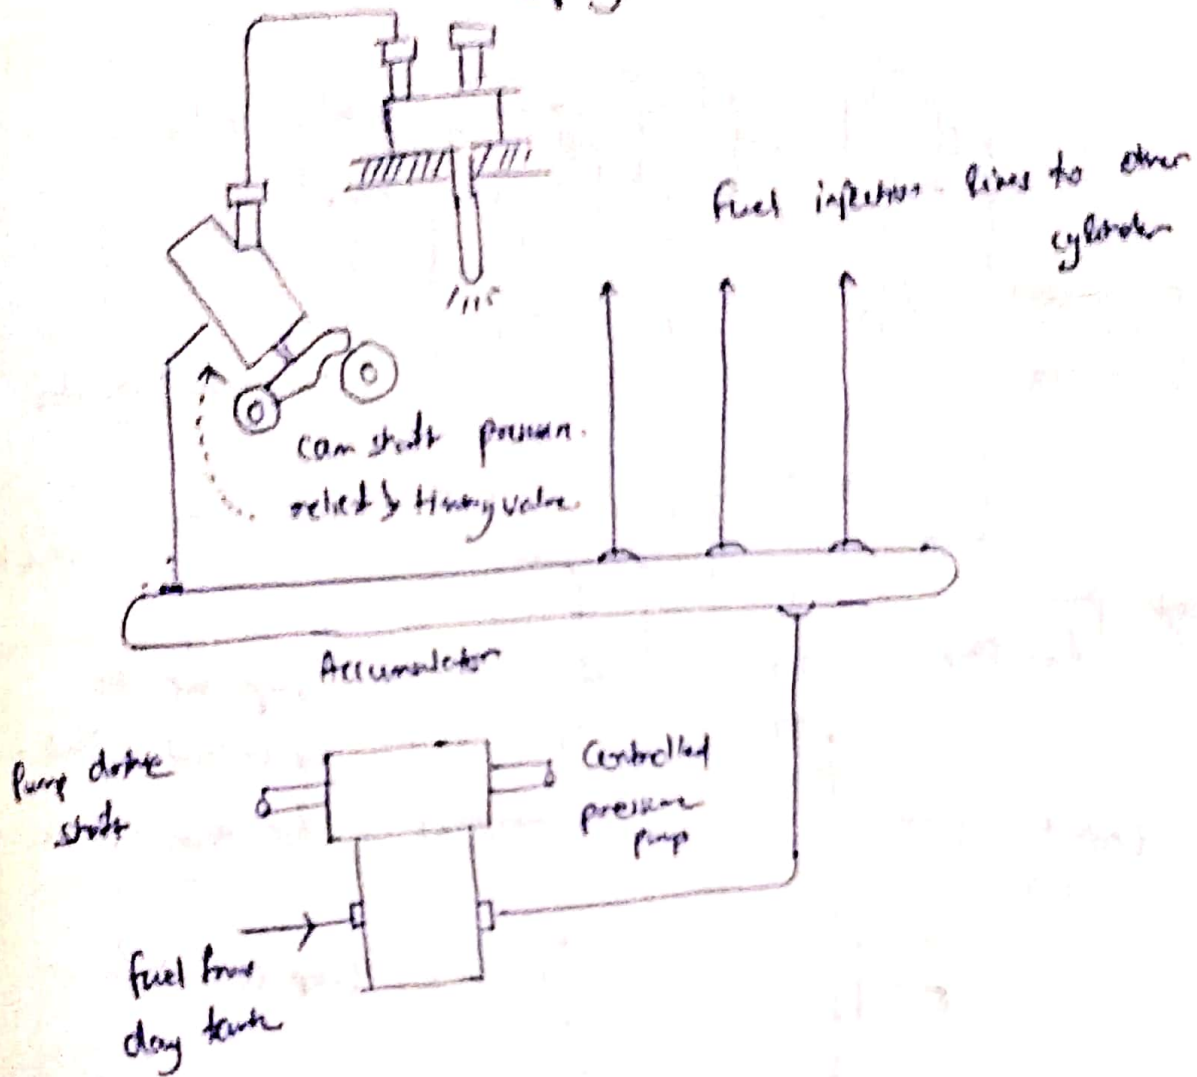 Fuel injection lines to other
cylinder
cam shaft pressure
relief & timing valve
Accumulator
Pump drive
shaft
Controlled
pressure
pump
fuel from
day tank